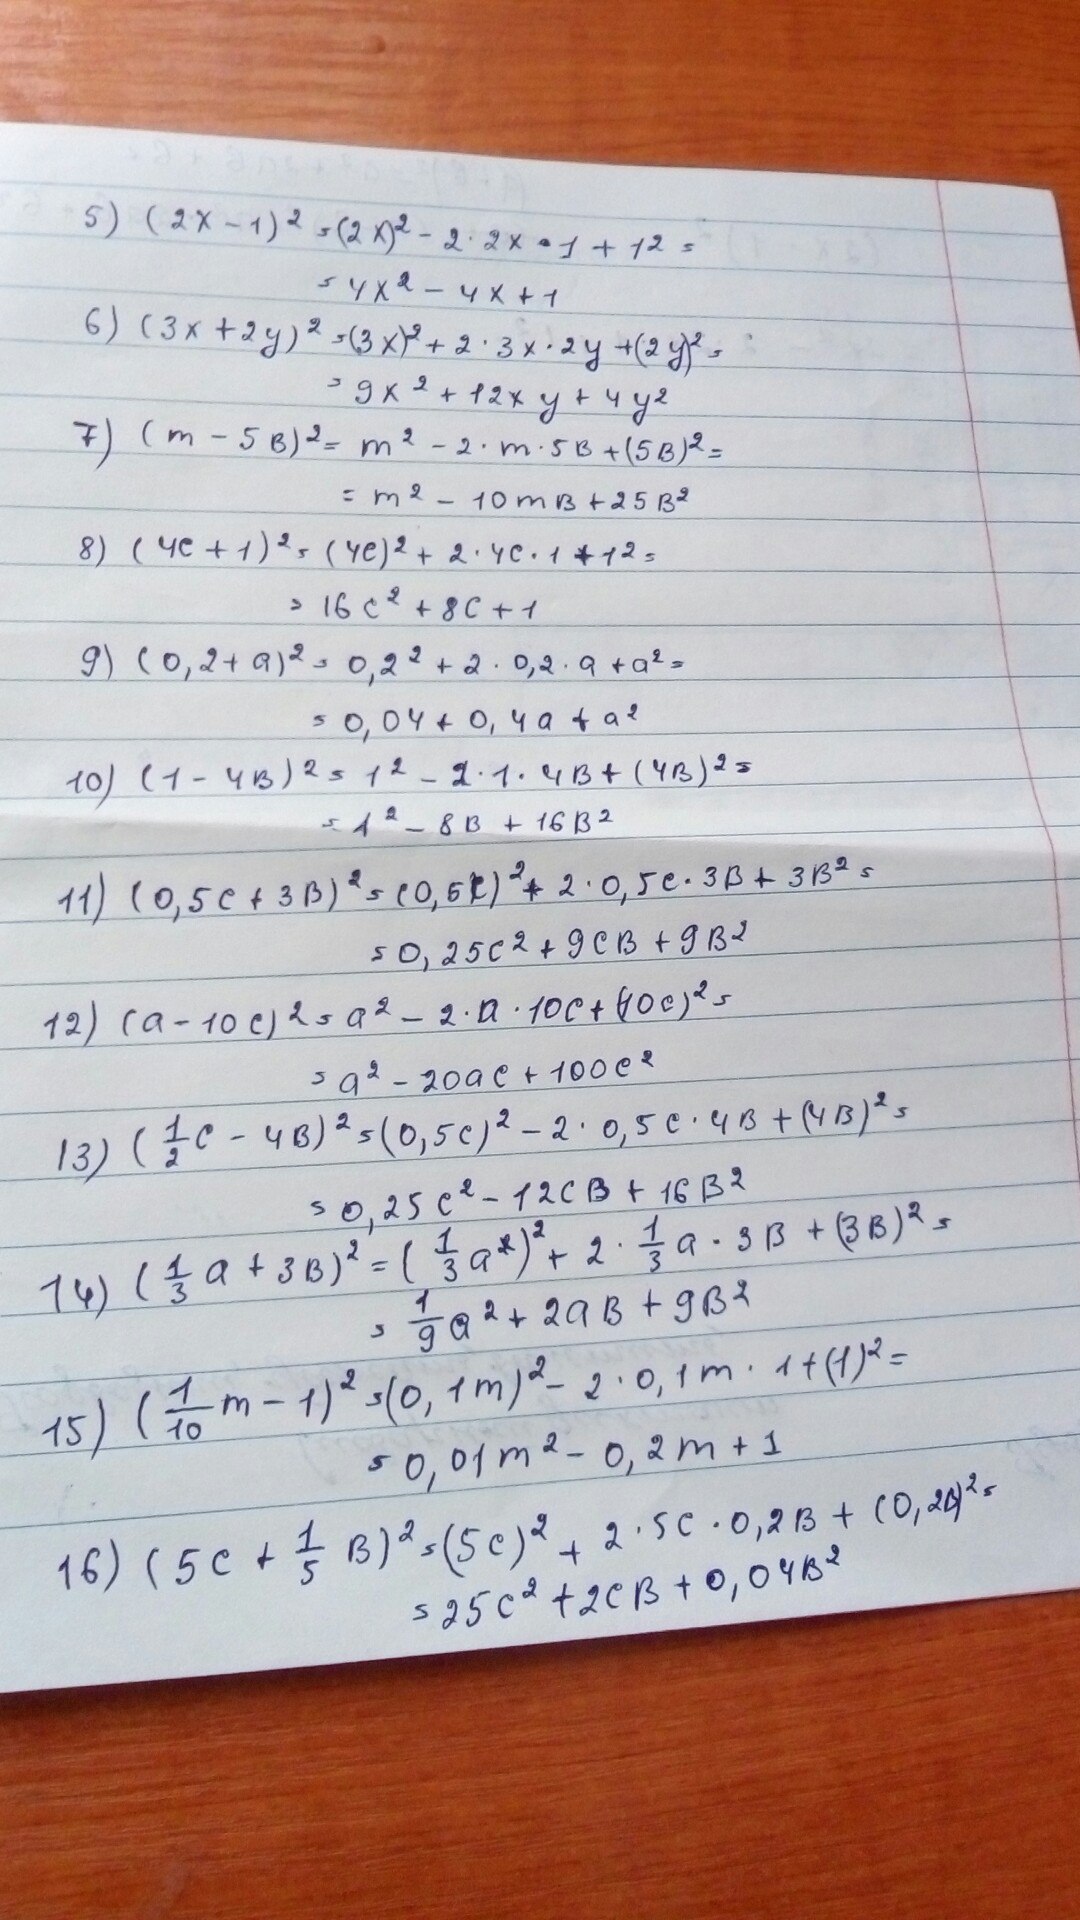 5) (2x - 1)² = (2x)² - 2 · 2x · 1 + 1² =
= 4x² - 4x + 1
6) (3x + 2y)² = (3x)² + 2 · 3x · 2y + (2y)² =
= 9x² + 12xy + 4y²
7) (m - 5в)² = m² - 2 · m · 5в + (5в)² =
= m² - 10mв + 25в²
8) (4c + 1)² = (4c)² + 2 · 4c · 1 + 1² =
= 16c² + 8c + 1
9) (0,2 + a)² = 0,2² + 2 · 0,2 · a + a² =
= 0,04 + 0,4a + a²
10) (1 - 4в)² = 1² - 2 · 1 · 4в + (4в)² =
= 1² - 8в + 16в²
11) (0,5c + 3в)² = (0,5c)² + 2 · 0,5c · 3в + 3в² =
= 0,25c² + 9cв + 9в²
12) (a - 10c)² = a² - 2 · a · 10c + (10c)² =
= a² - 20ac + 100c²
13) (1/2c - 4в)² = (0,5c)² - 2 · 0,5c · 4в + (4в)² =
= 0,25c² - 12cв + 16в²
14) (1/3a + 3в)² = (1/3a)² + 2 · 1/3a · 3в + (3в)² =
= 1/9a² + 2aв + 9в²
15) (1/10m - 1)² = (0,1m)² - 2 · 0,1m · 1 + (1)² =
= 0,01m² - 0,2m + 1
16) (5c + 1/5в)² = (5c)² + 2 · 5c · 0,2в + (0,2в)² =
= 25c² + 2cв + 0,04в²